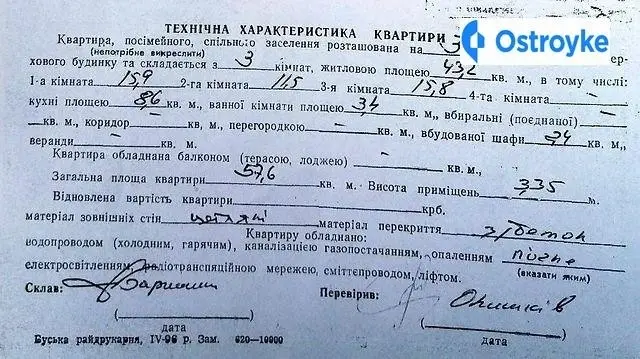 Ostroyke
ТЕХНІЧНА ХАРАКТЕРИСТИКА КВАРТИРИ
Квартира, посімейного, спільного заселення розташована на 3
(непотрібне викреслити) ер-
хового будинку та складається з 3 кімнат, житловою площею 43,2 кв. м., в тому числі:
1-а кімната 15,9 2-га кімната 11,5 3-я кімната 15,8 4-та кімната —
кухні площею 8,6 кв. м., ванної кімнати площею 3,4 кв. м,, вбиральні (поєднаної)
— кв. м., коридор — кв, м., перегородкою — кв. м., вбудованої шафи 2,4 кв. м.,
веранди — кв. м.
Квартира обладнана балконом (терасою, лоджею) — кв. м.,
Загальна площа квартири 57,6 кв. м. Висота приміщень 3,35 м.
Відновлена вартість квартири крб.
матеріал зовнішніх стін цегляні матеріал перекриття з/бетон
Квартиру обладнано:
водопроводом (холодним, гарячим), каналізацією газопостачанням, опаленням пічне
(вказати яким)
електросвітленням, радіотранспяційною мережею, сміттєпроводом, ліфтом.
Склав: Перевірив:
дата дата
Буська райдрукарня, IV-96 р. Зам. 620—10000